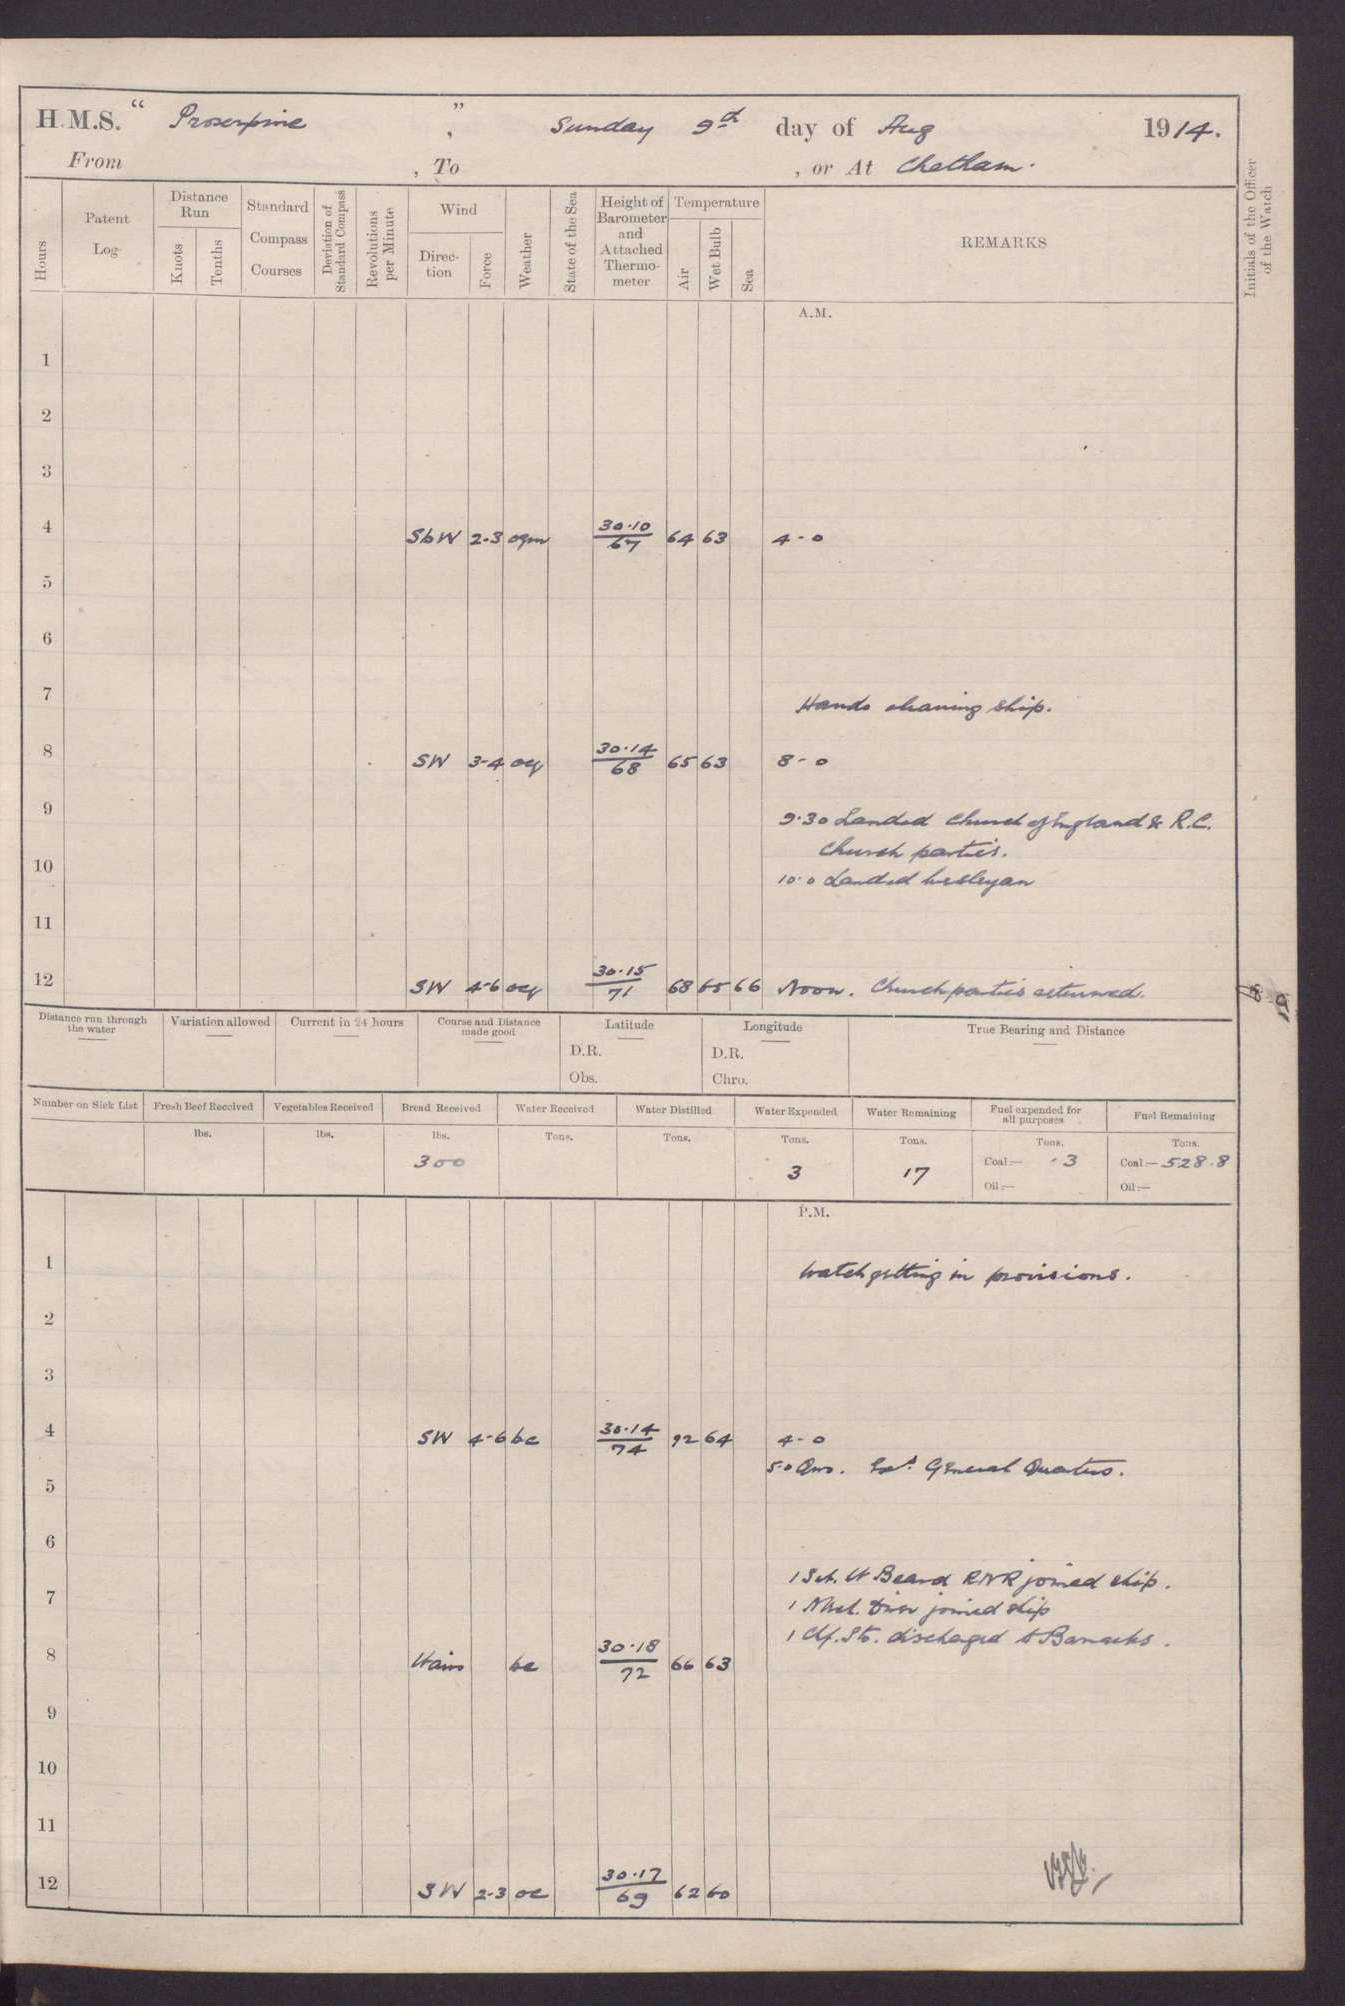 H.M.S. “ Proserpine ” , Sunday 9th day of Aug 1914.
From , To , or At Chatham.
Hours
Patent Log
Distance Run
Knots
Tenths
Standard Compass Courses
Deviation of Standard Compass
Revolutions per Minute
Wind
Direc-tion
Force
Weather
State of the Sea
Height of Barometer and Attached Thermo-meter
Temperature
Air
Wet Bulb
Sea
REMARKS
Initials of the Officer of the Watch
A.M.
1
2
3
4 SbW 2-3 ogm 30.10/67 64 63 4-0
5
6
7 Hands cleaning ship.
8 SW 3-4 ocq 30.14/68 65 63 8-0
9 9.30 Landed Church of England & R.C.
Church parties.
10 10.0 Landed Wesleyan
11
12 SW 4-6 ocq 30.15/71 68 65 66 Noon. Church parties returned.
Distance run through the water
Variation allowed
Current in 24 hours
Course and Distance made good
Latitude
D.R.
Obs.
Longitude
D.R.
Chro.
True Bearing and Distance
Number on Sick List
Fresh Beef Received
Vegetables Received
Bread Received
Water Received
Water Distilled
Water Expended
Water Remaining
Fuel expended for all purposes
Fuel Remaining
lbs.
lbs.
lbs.
300
Tons.
Tons.
Tons.
3
Tons.
17
Tons.
Coal:— .3
Oil:—
Tons.
Coal:— 528.8
Oil:—
P.M.
1 Watch getting in provisions.
2
3
4 SW 4-6 bc 30.14/74 72 64 4-0
5.0 Qrs. Exd. General Quarters.
5
6
1 Sub. Lt Beard RNR joined ship.
7 1 joined ship
1 Ch. Sto. discharged to Barracks.
8 bc 30.18/72 66 63
9
10
11
12 SW 2-3 oc 30.17/69 62 60